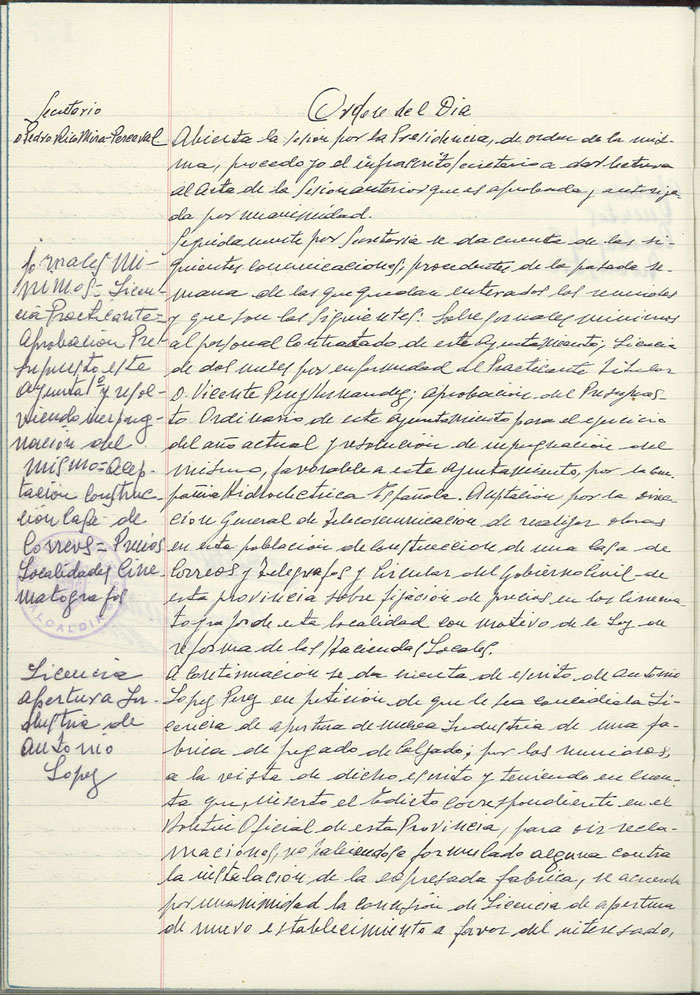 Orden del Dia
Secretario
D. Pedro Mira-Perceval
Abierta la sesión por la Presidencia, de orden de la mis-
ma, procedo yo el infrascrito Secretario a dar lectura
al Acta de la Sesion anterior que es aprobada y autoriza
da por unanimidad.
Jornales Mi-
nimos = Licen-
cia Practicante =
Aprobación Pre-
supuesto este
Ayuntatº y resol-
viendo impug-
nación del
mismo = Acep-
tación construc-
ción Casa de
Correos = Precios
Localidades Cine-
matografos
Seguidamente por Secretaria se da cuenta de las si-
guientes comunicaciones, procedentes de la pasada se-
mana de las que quedan enterados los reunidos
y que son las siguientes: Sobre jornales minimos
al personal Contratado de este Ayuntamiento; Licencia
de dos meses por enfermedad al Practicante Titular
D. Vicente Perez Hernandez; Aprobación del Presupues-
to Ordinario de este Ayuntamiento para el ejercicio
del año actual y resolución de impugnación del
mismo, favorable a este Ayuntamiento, por la Com-
pañia Hidroelectrica Española. Aceptación por la Direc-
cion General de Telecomunicacion de realizar obras
en esta población de Construccion de una Casa de
Correos y Telegrafos y Circular del Gobierno Civil de
esta provincia sobre fijación de precios en los Cinema-
tografos de esta localidad con motivo de la Ley en
reforma de las Haciendas Locales.
ALCALDIA
Licencia
apertura In-
dustria de
Antonio
Lopez
A Continuacion se da cuenta de escrito de Antonio
Lopez Perez en petición de que le sea concedida Li-
cencia de apertura de nueva Industria de una fa-
brica de pegado de Calzado; por los reunidos,
a la vista de dicho escrito y teniendo en cuen-
ta que, inserto el Edicto correspondiente en el
Boletin Oficial de esta Provincia, para oir recla-
maciones, no habiendose formulado alguna contra
la instalacion de la expresada fabrica, se acuerda
por unanimidad la concesión de Licencia de apertura
de nuevo establecimiento a favor del interesado,